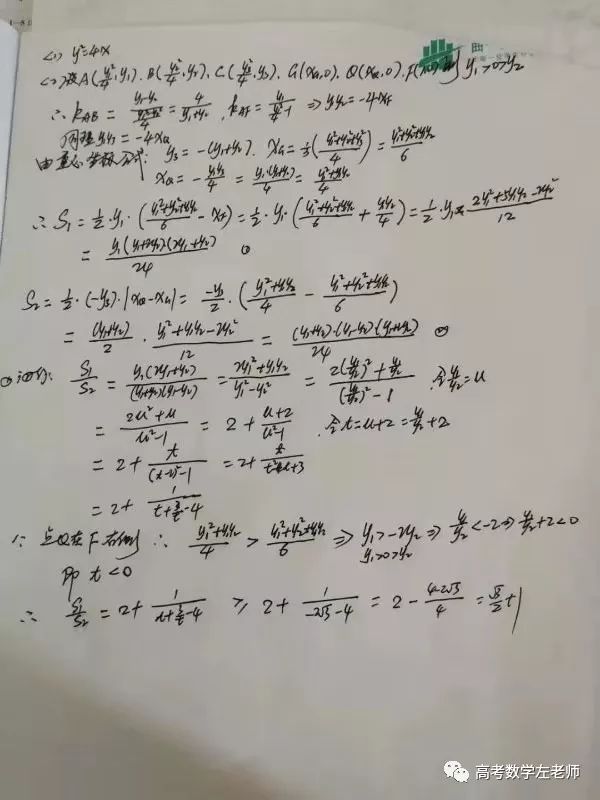 <1> y²=4x
<2>设A(y₁²/4, y₁), B(y₂²/4, y₂), C(y₃²/4, y₃), G(x_G,0), Q(x_Q,0), F(x_F,0) 则 y₁>0>y₂
∴ k_AB = (y₁-y₂)/((y₁²-y₂²)/4) = 4/(y₁+y₂), k_AF = y₁/(y₁²/4-1) ⇒ y₁y₂=-4x_F
同理 y₁y₃=-4x_Q
由重心坐标公式: y₃=-(y₁+y₂), x_G=1/3(y₁²+y₂²+y₃²)/4 = (y₁²+y₂²+y₁y₂)/6
x_Q=-y₁y₃/4 = y₁(y₁+y₂)/4 = (y₁²+y₁y₂)/4
∴ S₁=1/2·y₁·((y₁²+y₂²+y₁y₂)/6 - x_F)=1/2·y₁·((y₁²+y₂²+y₁y₂)/6 + y₁y₂/4)=1/2 y₁×(2y₁²+5y₁y₂+2y₂²)/12
= y₁(y₁+2y₂)(2y₁+y₂)/24 ①
S₂=1/2·(-y₃)·|x_Q-x_G|= -y₃/2·((y₁²+y₁y₂)/4 - (y₁²+y₂²+y₁y₂)/6)
= (y₁+y₂)/2 · (y₁²+y₁y₂-2y₂²)/12 = (y₁+y₂)·(y₁-y₂)·(y₁+2y₂)/24 ②
S₁/S₂ = y₁(2y₁+y₂)/((y₁+y₂)(y₁-y₂)) = (2y₁²+y₁y₂)/(y₁²-y₂²) = (2(y₁/y₂)²+y₁/y₂)/((y₁/y₂)²-1) 令y₁/y₂=u
= (2u²+u)/(u²-1) = 2+(u+2)/(u²-1) 令t=u+2=y₁/y₂+2
= 2+ t/((t-2)²-1) = 2+ t/(t²-4t+3)
= 2+ 1/(t+3/t-4)
∵ 点Q在F右侧 ∴ (y₁²+y₁y₂)/4 > (y₁²+y₂²+y₁y₂)/6 ⇒ y₁>-2y₂ ⇒ y₁/y₂<-2 ⇒ y₁/y₂+2<0
y₁>0>y₂
即 t<0
∴ S₁/S₂ = 2+ 1/(t+3/t-4) ≥ 2+ 1/(-2√3-4) = 2-(4-2√3)/4 = √3/2+1
高考数学左老师